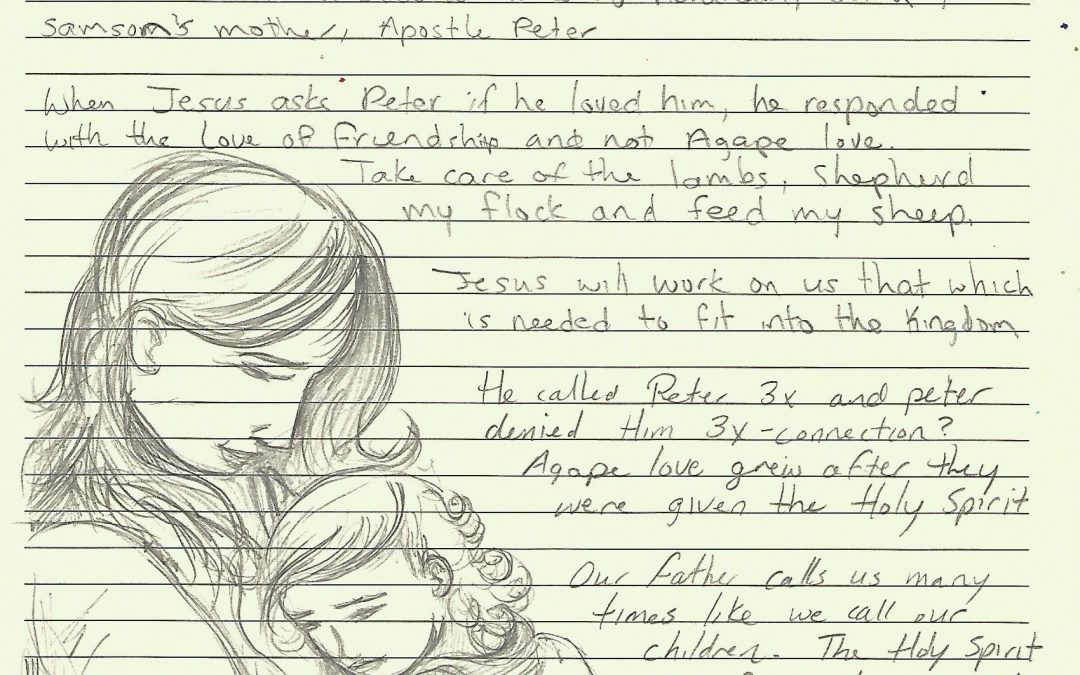 samsom's mother, Apostle Peter
When Jesus asks Peter if he loved him, he responded
with the Love of friendship and not Agape love.
Take care of the lambs, shepherd
my flock and feed my sheep.
Jesus will work on us that which
is needed to fit into the Kingdom
He called Peter 3x and peter
denied Him 3x - connection?
Agape love grew after they
were given the Holy Spirit
Our Father calls us many
times like we call our
children. The Holy Spirit